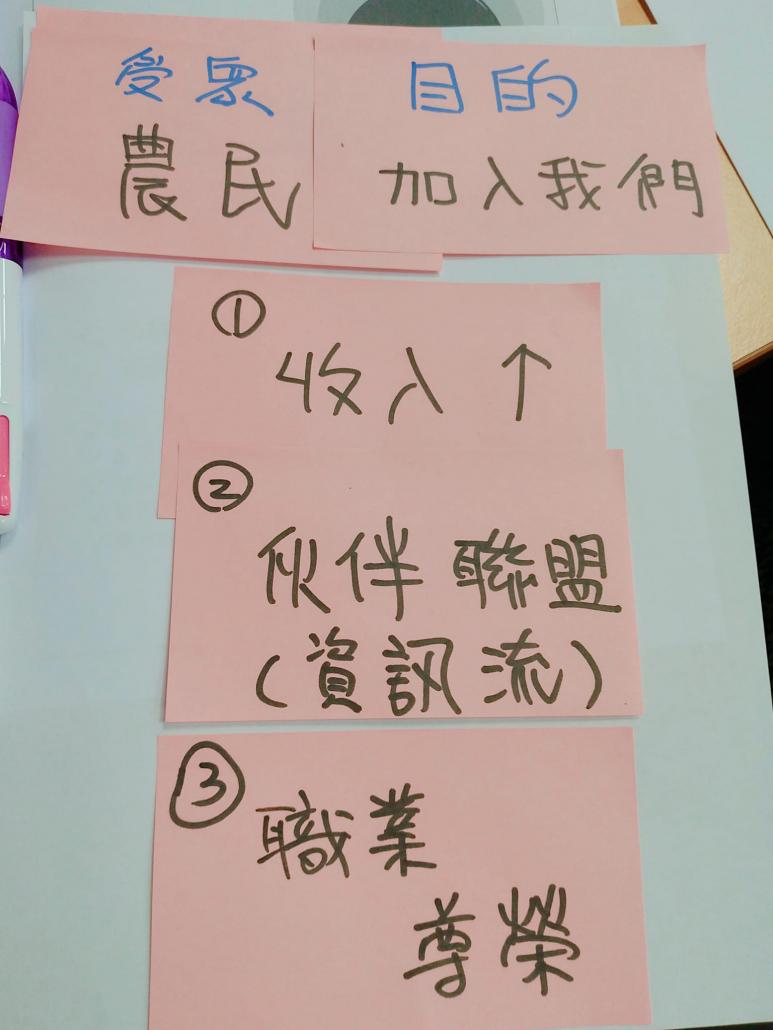 受眾
農民
目的
加入我們
①
收入↑
②
伙伴聯盟
(資訊流)
③
職業
尊榮